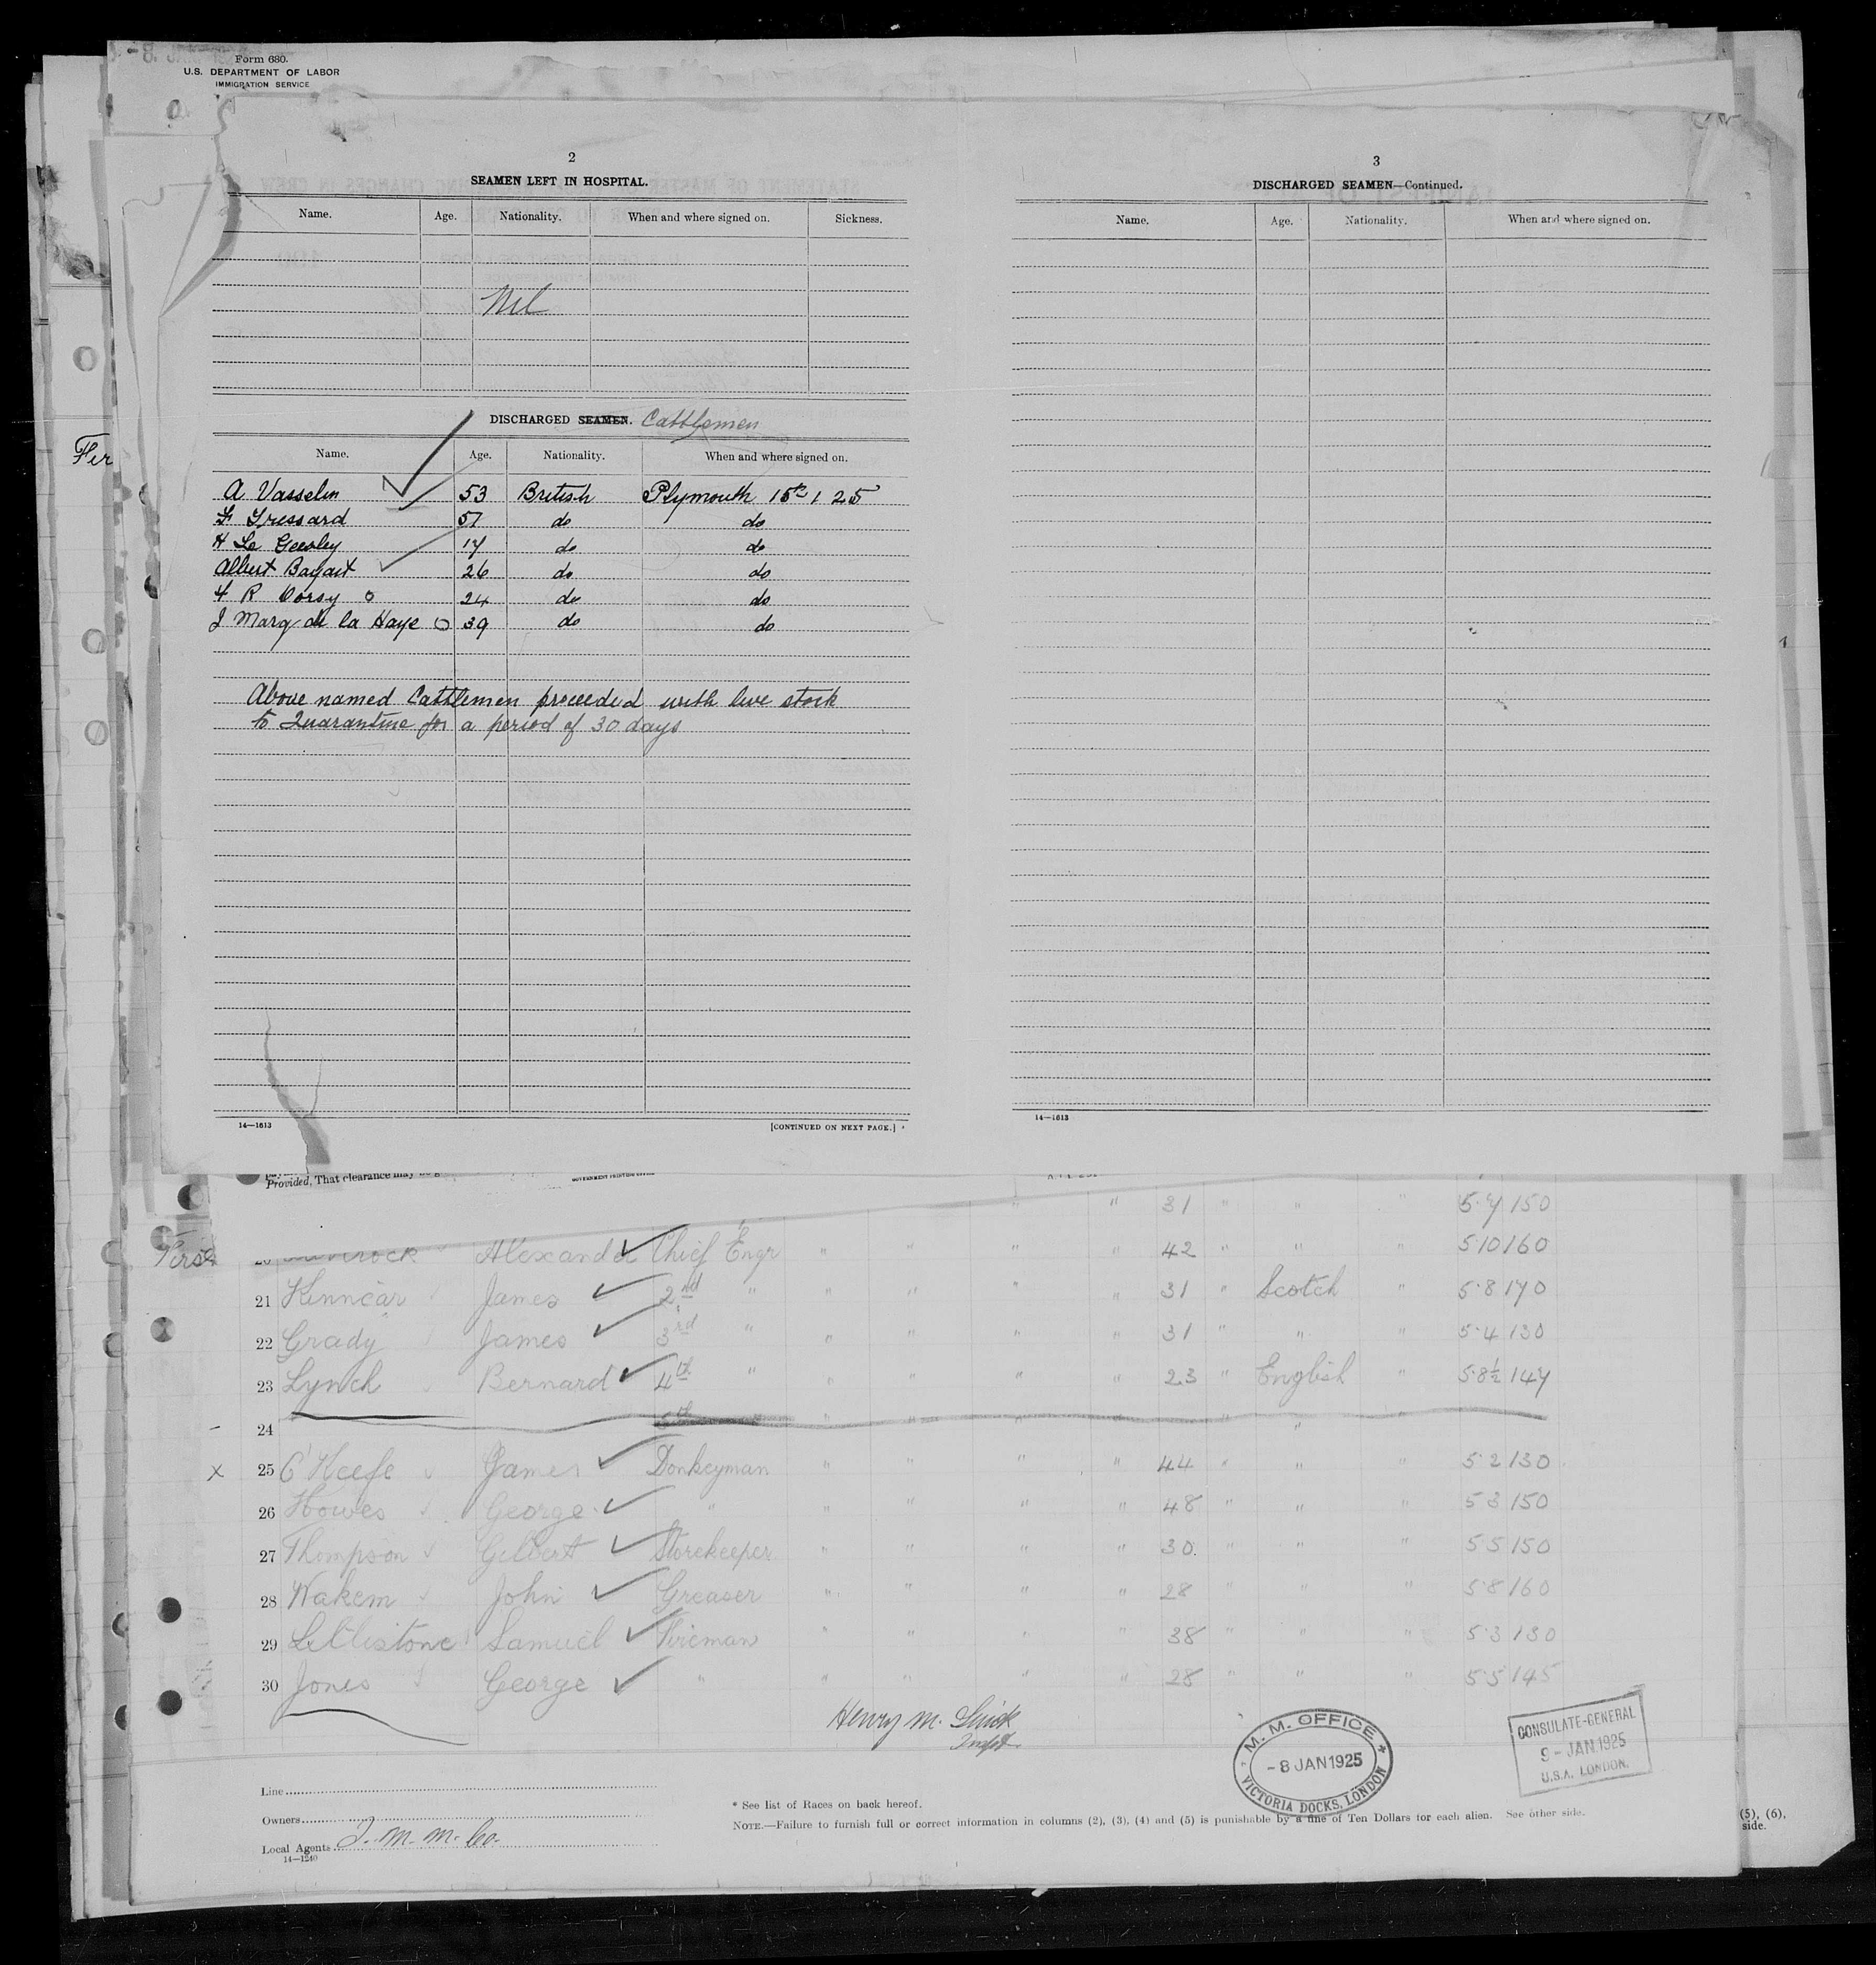 Form 680.
U.S. DEPARTMENT OF LABOR
IMMIGRATION SERVICE
2
SEAMEN LEFT IN HOSPITAL.
Name. Age. Nationality. When and where signed on. Sickness.
Nil
DISCHARGED SEAMEN. Cattlemen
Name. Age. Nationality. When and where signed on.
A Vasselin 53 British Plymouth 15th 1 25
51 do do
H Le 17 do do
Albert 26 do do
R 24 do do
J Marq de la Haye 39 do do
Above named Cattlemen proceeded with live stock
to Quarantine for a period of 30 days
14—1613 [CONTINUED ON NEXT PAGE.]
3
DISCHARGED SEAMEN—Continued.
Name. Age. Nationality. When and where signed on.
14—1613
Fir
Provided, That clearance may be
GOVERNMENT PRINTING OFFICE
" " 31 " " " 150
Alexander Chief Engr " " " 42 " " " 5 10 160
21 Kinnear James 2nd " " " " " 31 " Scotch " 5·8 170
22 Grady James 3rd " " " " " 31 " " " 5·4 130
23 Lynch Bernard 4th " " " " " 23 " English " 5·8½ 147
24 5th " " " " " " "
x 25 O'Keefe James Donkeyman " " " " 44 " " " 5 2 130
26 Howes George " " " " " 48 " " " 5 3 150
27 Thompson Gilbert Storekeeper " " " " 30 " " " 5 5 150
28 Wakem John Greaser " " " " 28 " " " 5·8 160
29 Littlestone Samuel Fireman " " " " 38 " " " 5·3 130
30 Jones George " " " " " 28 " " " 5·5 145
Henry M.
Inspt.
M. M. OFFICE
- 8 JAN 1925
VICTORIA DOCKS, LONDON
CONSULATE-GENERAL
9 - JAN. 1925
U.S.A. LONDON.
Line
Owners
Local Agents I. M. M. Co.
14—1240
* See list of Races on back hereof.
NOTE.—Failure to furnish full or correct information in columns (2), (3), (4) and (5) is punishable by a fine of Ten Dollars for each alien. See other side.
(5), (6),
side.